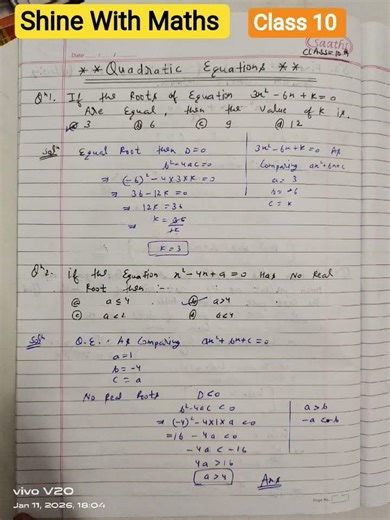 Shine With Maths Class 10
Saathi
CLASS=10th
Date ....../....../......
** Quadratic Equations **
Qn1. If the Roots of Equation 3x²-6x+k=0
Are Equal, then the value of k is.
ⓐ 3 ⓑ 6 ⓒ 9 ⓓ 12
Solⁿ Equal Root then D=0
b²-4ac=0
⇒ (-6)²-4×3×k=0
⇒ 36-12k=0
⇒ 12k=36
⇒ k=36/12
k=3
3x²-6x+k=0 As
Comparing ax²+bx+c
a = 3
b = -6
c = k
Qn2. if the Equation x²-4x+a=0 Has No Real
Root then :-
ⓐ a≤4 ⓑ a>4
ⓒ a<2 ⓓ a<4
Solⁿ Q.E. As Comparing ax²+bx+c=0
a=1
b=-4
c=a
No Real Roots D<0
b²-4ac<0
⇒ (-4)²-4×1×a<0
=16-4a<0
-4a<-16
4a>16
a>4 Ans
a>b
-a<-b
vivo V20
Jan 11, 2026, 18:04